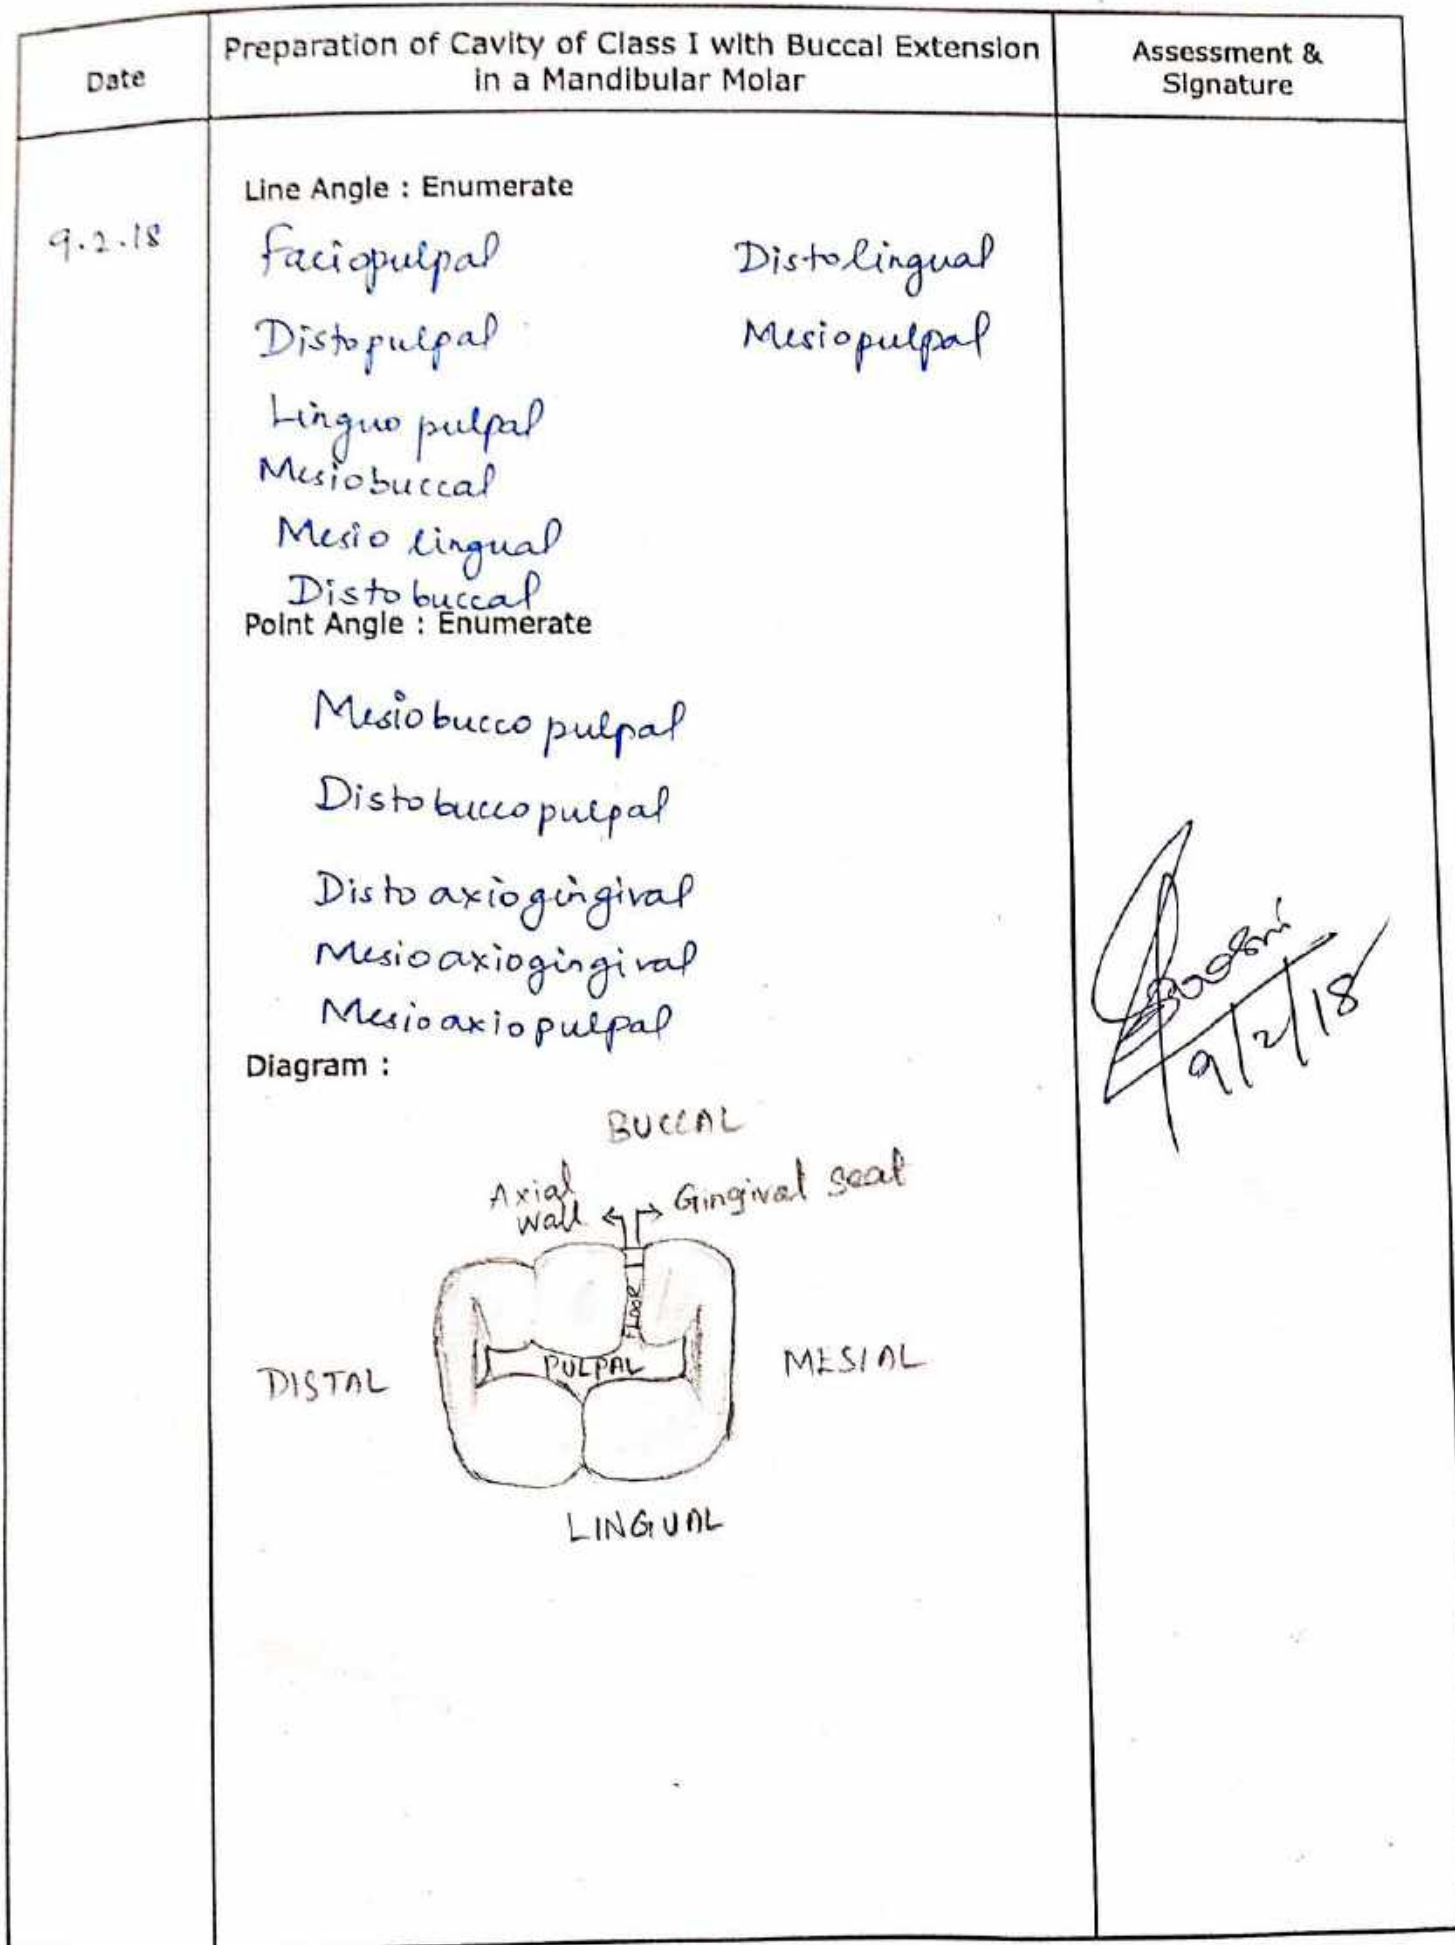 Date
Preparation of Cavity of Class I with Buccal Extension
in a Mandibular Molar
Assessment &
Signature
9.2.18
Line Angle : Enumerate
Faciopulpal
Distolingual
Distopulpal
Mesiopulpal
Linguo pulpal
Mesiobuccal
Mesio lingual
Distobuccal
Point Angle : Enumerate
Mesiobucco pulpal
Distobuccopulpal
Disto axiogingival
Mesioaxiogingival
Mesioaxiopulpal
9/2/18
Diagram :
BUCCAL
Axial
wall
Gingival seat
FLOOR
PULPAL
DISTAL
MESIAL
LINGUAL